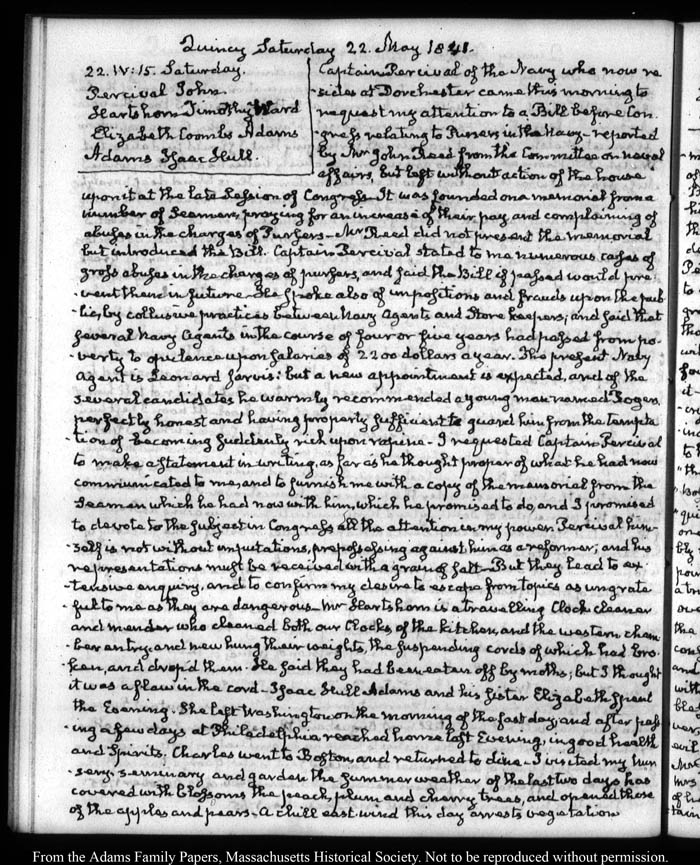 Quincy Saturday 22. May 1841.
22. IV:15. Saturday.
Percival John.
Hartshorn Timothy Ward
Elizabeth Coombs Adams
Adams Isaac Hull.
Captain Percival of the Navy who now re
-sides at Dorchester came this morning to
request my attention to a Bill before Con
-gress relating to Pursers in the Navy - reported
by Mr John Reed from the Committee on naval
affairs, but left without action of the house
upon it at the late Session of Congress - It was founded on a memorial from a
number of Seamen, praying for an increase of their pay, and complaining of
abuses in the charges of Pursers - Mr Reed did not present the memorial
but introduced the Bill. Captain Percival stated to me numerous cases of
gross abuses in the charges of pursers, and said the Bill if passed would pre
-vent them in future - He spoke also of impositions and frauds upon the pub
-lic, by collusive practices between Navy Agents and Store keepers; and said that
several Navy Agents in the course of four or five years had passed from po
-verty to opulence upon salaries of 2200 dollars a year. The present Navy
Agent is Leonard Jarvis: but a new appointment is expected, and of the
several candidates he warmly recommended a young man named
perfectly honest and having property sufficient to guard him from the tempta
-tion of becoming suddenly rich upon rapine - I requested Captain Percival
to make a statement in writing, as far as he thought proper of what he had now
communicated to me, and to furnish me with a copy of the memorial from the
Seamen which he had now with him, which he promised to do, and I promised
to devote to the subject in Congress all the attention in my power. Percival him
-self is not without imputations, prepossessing against him as a reformer; and his
representations must be received with a grain of salt - But they lead to ex
-tensive enquiry, and to confirm my desire to escape from topics as ungrate
-ful to me as they are dangerous - Mr Hartshorn is a travelling Clock cleaner
and mender who cleaned both our Clocks, of the kitchen, and the western cham
-ber entry, and new hung their weights, the suspending cords of which had bro-
-ken, and drop'd them. He said they had been eaten off by moths; but I thought
it was a flaw in the cord - Isaac Hull Adams and his sister Elizabeth spent
the Evening. She left Washington on the morning of the fast day, and after pass
-ing a few days at Philadelphia reached home last Evening, in good health
and Spirits. Charles went to Boston, and returned to dine - I visited my nur
-sery, seminary and garden the summer weather of the last two days has
covered with blossoms the peach, plum and cherry trees, and opened those
of the apples and pears. A chill east wind this day arrests vegetation
From the Adams Family Papers, Massachusetts Historical Society. Not to be reproduced without permission.